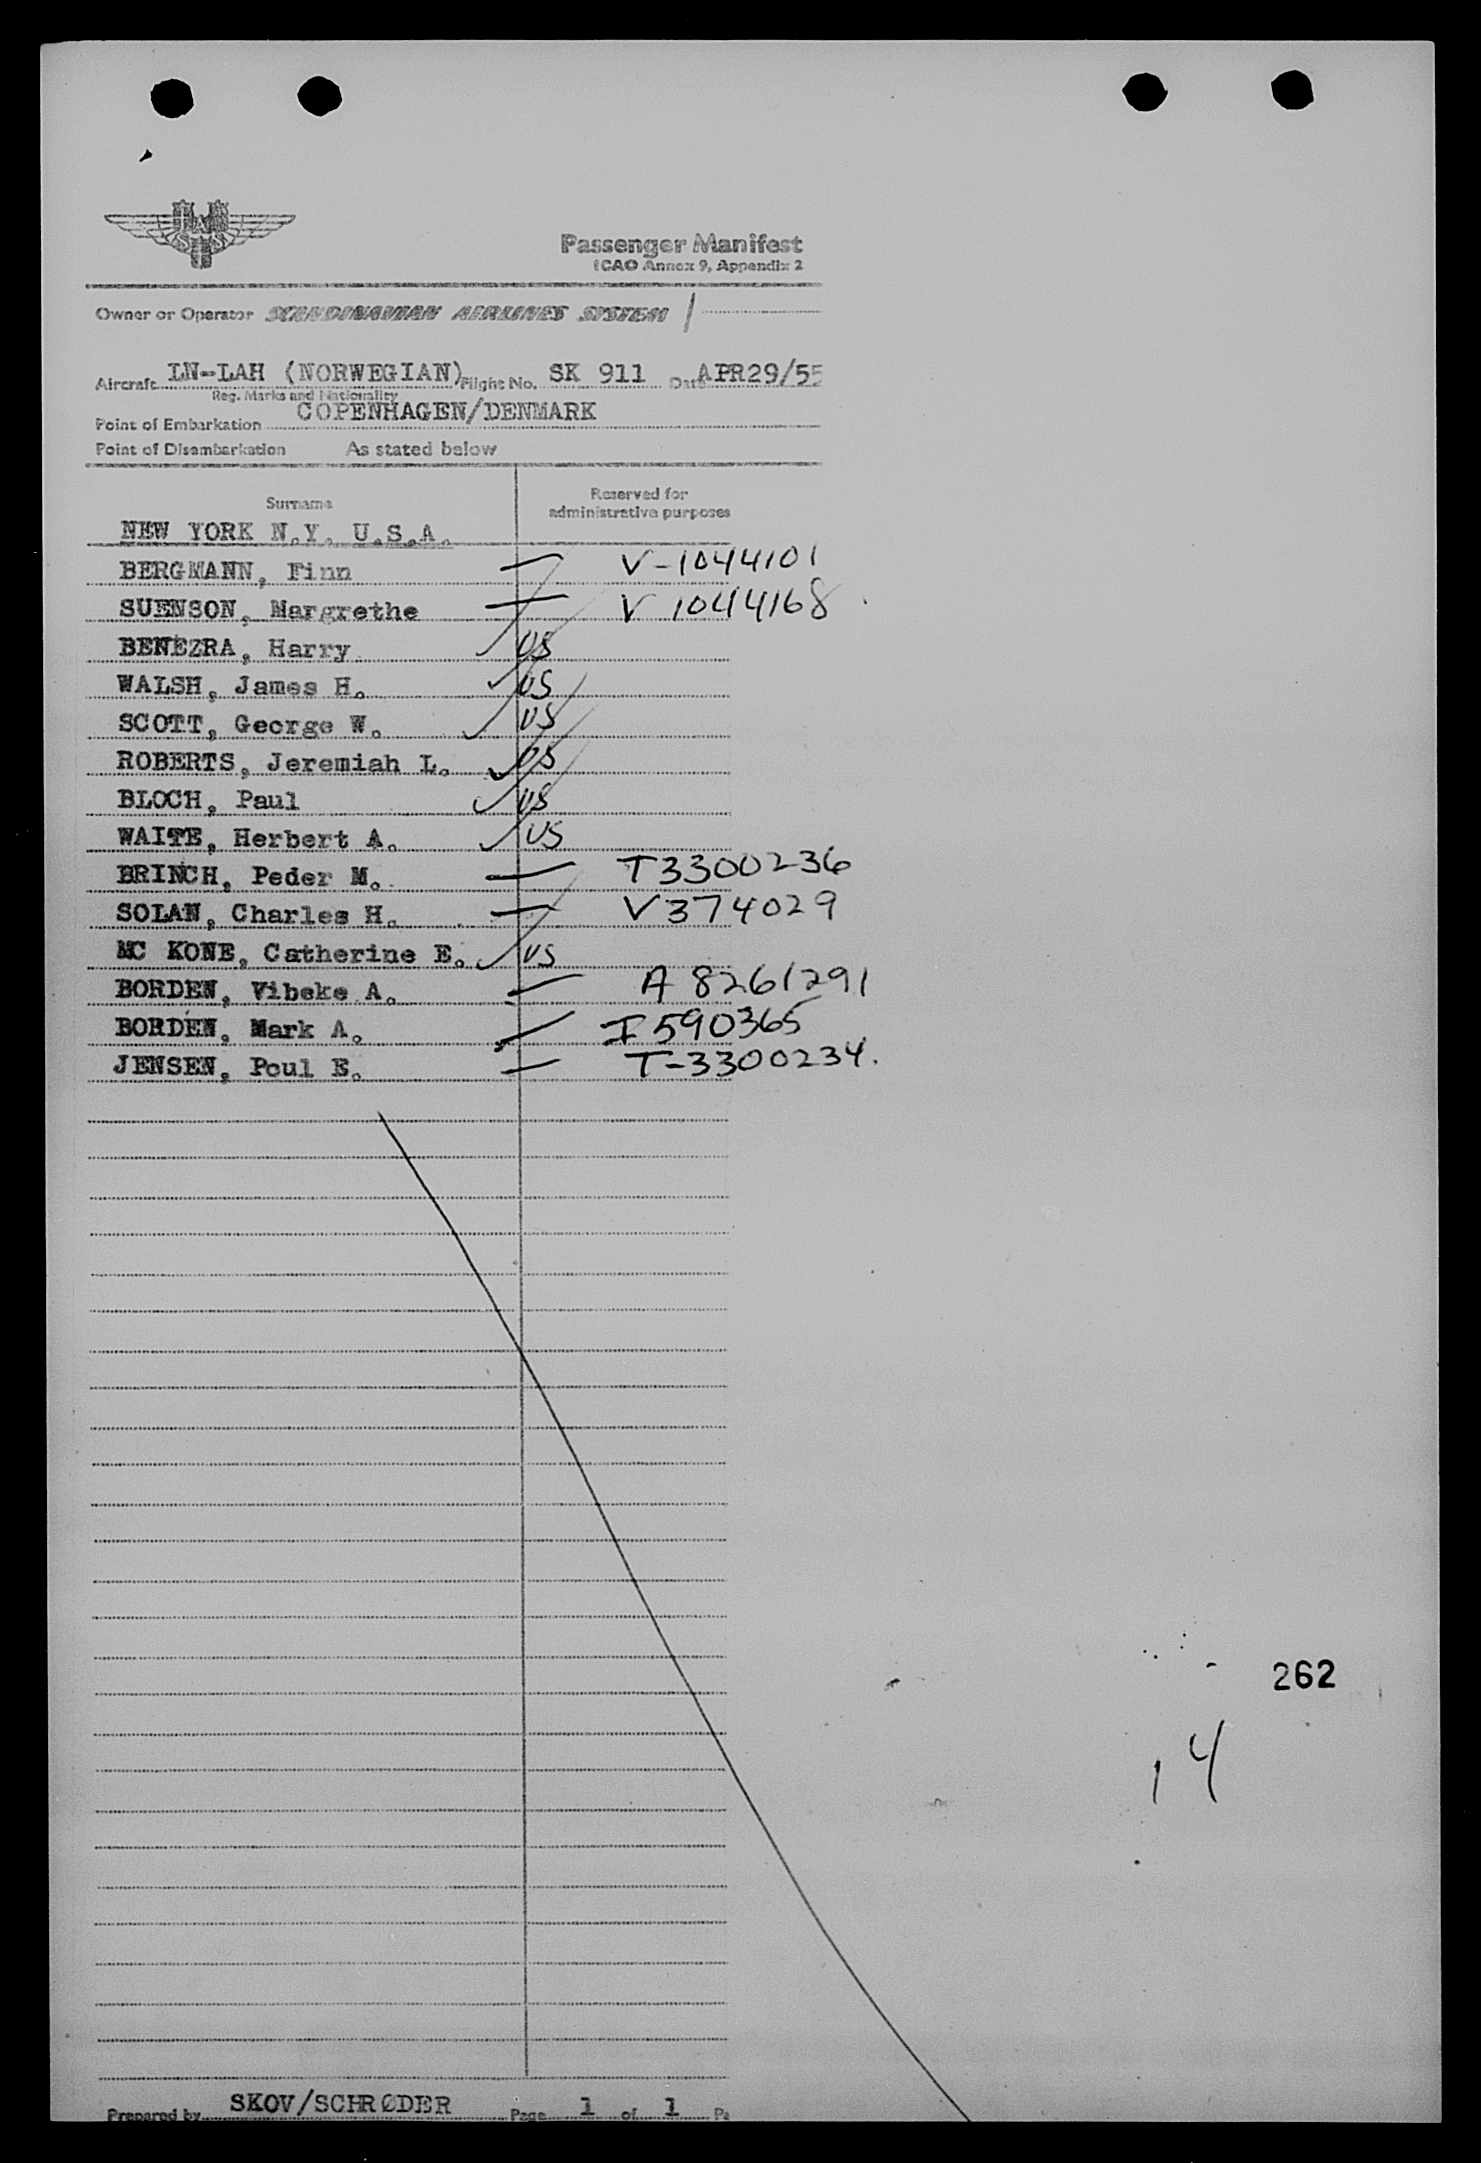 SAS
Passenger Manifest
ICAO Annex 9, Appendix 2
Owner or Operator SCANDINAVIAN AIRLINES SYSTEM
Aircraft LN-LAH (NORWEGIAN) Flight No. SK 911 Date APR29/55
Reg. Marks and Nationality
Point of Embarkation COPENHAGEN/DENMARK
Point of Disembarkation As stated below
Surname Reserved for administrative purposes
NEW YORK N.Y. U.S.A.
BERGMANN, Finn V-1044101
SUENSON, Margrethe V 1044168
BENEZRA, Harry US
WALSH, James H. US
SCOTT, George W. US
ROBERTS, Jeremiah L. US
BLOCH, Paul US
WAITE, Herbert A. US
BRINCH, Peder M. T3300236
SOLAN, Charles H. V374029
MC KONE, Catherine E. US
BORDEN, Vibeke A. A 8261291
BORDEN, Mark A. I590365
JENSEN, Poul E. T-3300234.
262
14
Prepared by SKOV/SCHRØDER Page 1 of 1 Pa